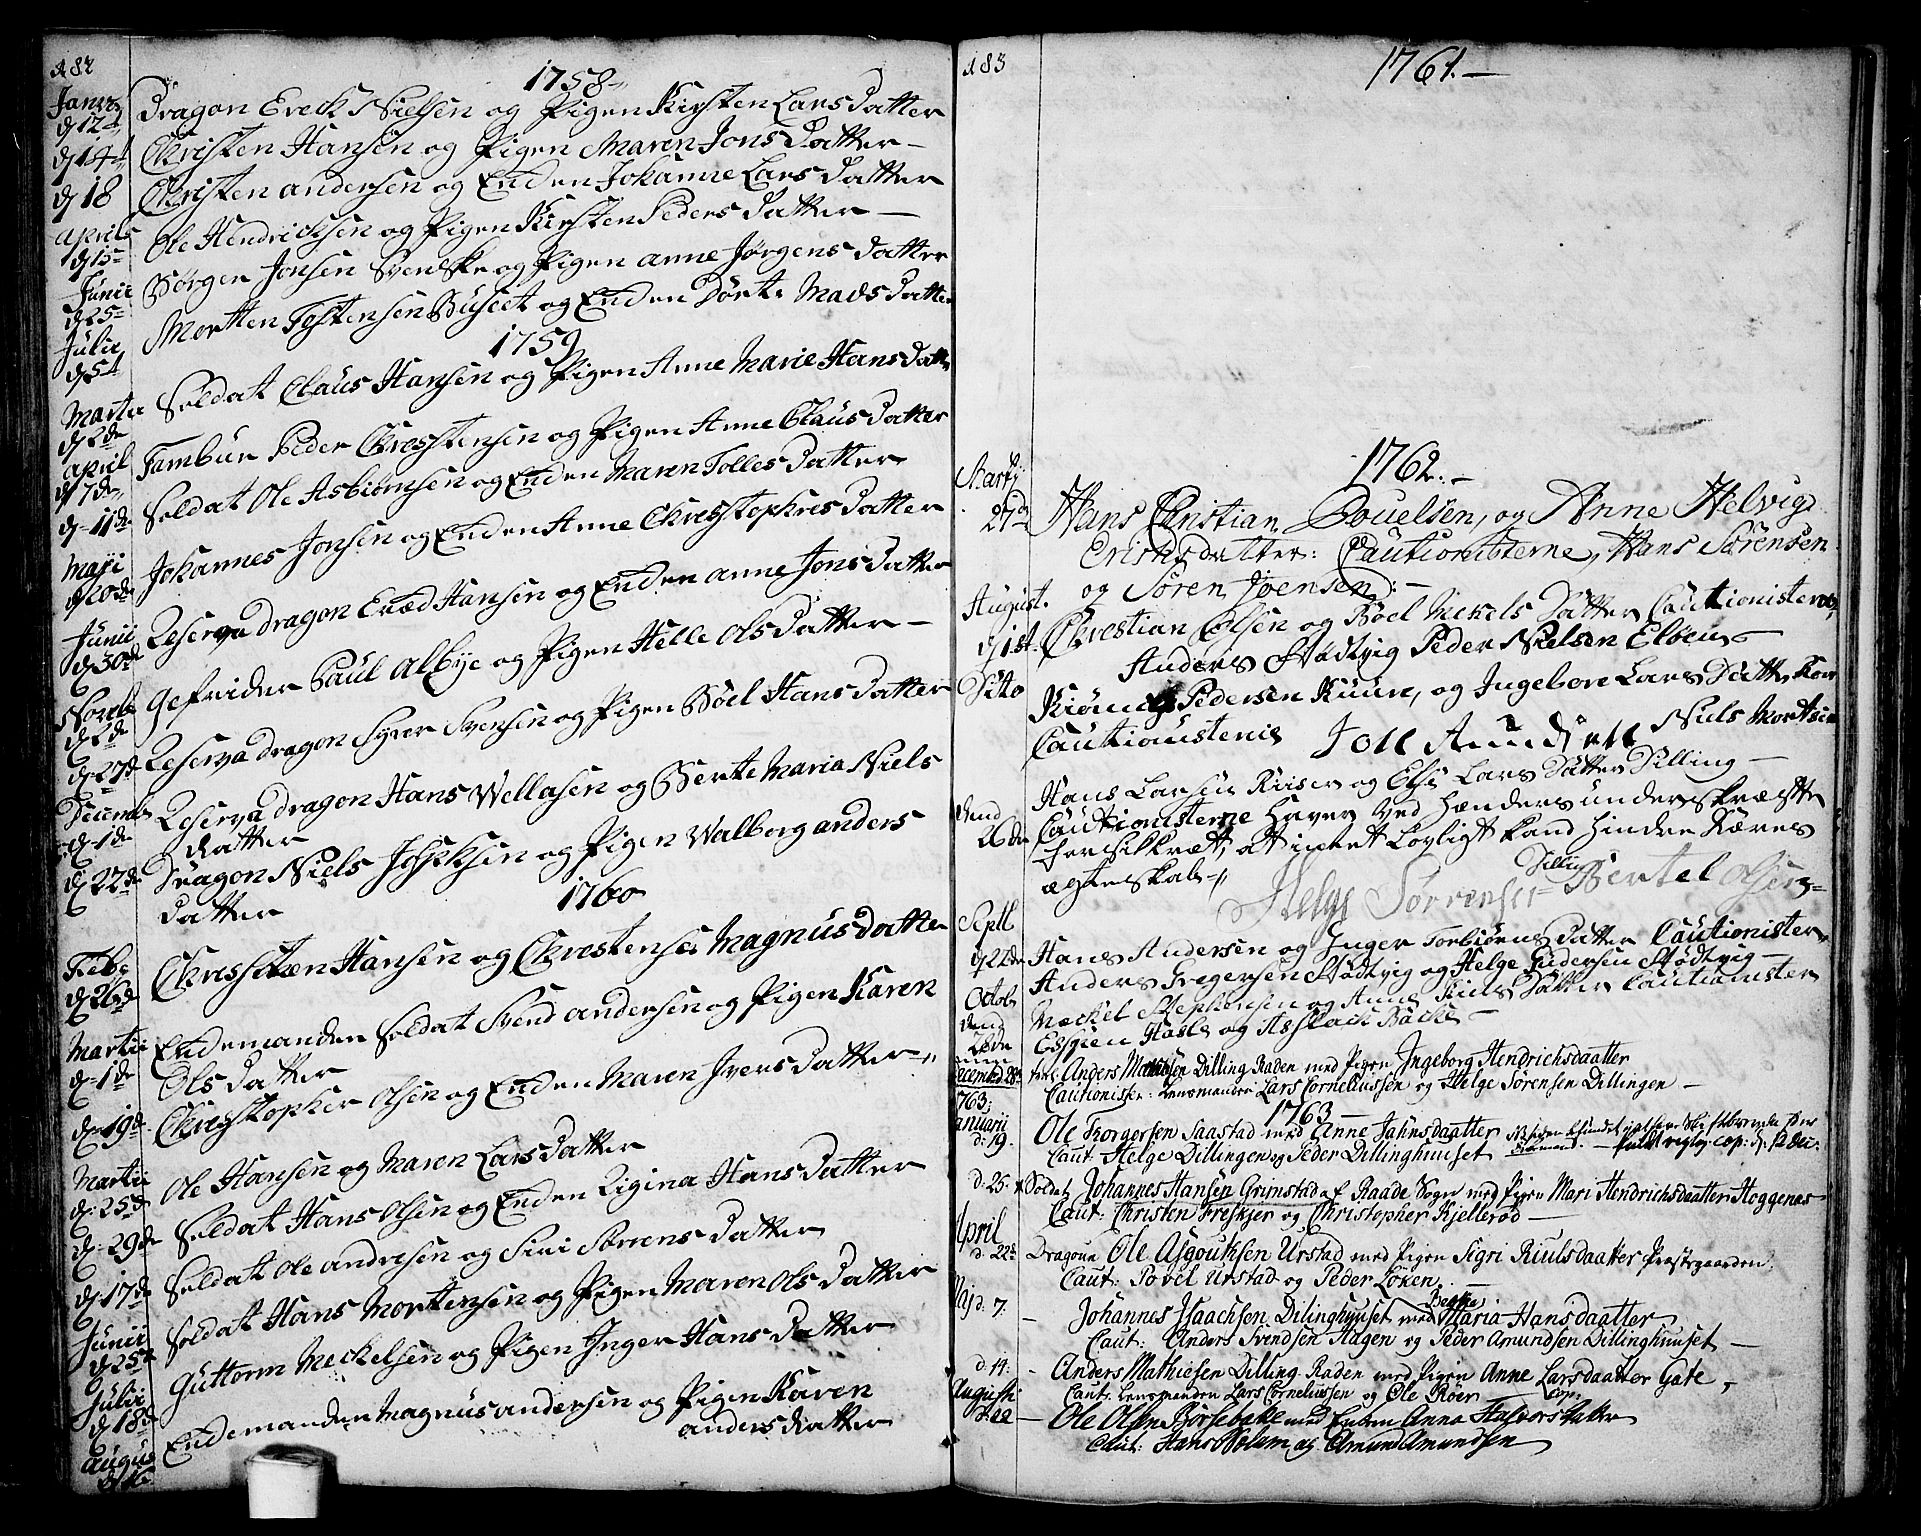 182
1758
Janua
d 12t Dragon Ereck Nielsen og Pigen Kirsten Lars Datter
d 14t Christen Hansen og Pigen Maren Jons Datter
d 18 Christen andersen og Enden Johanne Lars Datter
aprels
d 15 Ole Hendricksen og Pigen Kirsten Peders Datter
Junii
d 25 Børgen Jonsen Svenske og Pigen anne Jørgens Datter
Julii
d 5t Mortten Tostensen Buseet og Enden Dorte Mads Datter
1759
Martii
d 2de Soldat Claus Hansen og Pigen Anne Marie Hans Datter
april
d 7de Tambur Peder Chresstensen og Pigen Anne Claus Datter
d 11de Soldat Ole Asbiønsen og Enden Maren Tolles Datter
Maji
d 20de Johannes Jonsen og Enden Anne Chresstophers Datter
Junii
d 30de Reserva dragon Hansen og Enden anne Jons Datter
Novemb
d 2de Gefrider Paul Albye og Pigen Helle Ols Datter
d 27d Reserva dragon Syver Svensen og Pigen Böel Hans Datter
Decemb
d 1de Reserva dragon Hans Wellasen og Berte Maria Niels
Datter
d 27de Dragon Niels og Pigen Walborg anders
Datter
1760
Feb
d 26d Chresstæn Hansen og Chrestense Magnus datter
Martii
d 1de Endemanden Soldat Svend andersen og Pigen Karen
Ols Datter
d 19d Chresstopher Olsen og Enden Maren Ivers Datter
Martii
d: 25d Ole Hansen og Maren Lars Datter
d: 29de Soldat Hans Olsen og Enden Zigina Hans Datter
d: 17de Soldat Ole andresen og Siri Sørens Datter
Junii
d 25d Soldat Hans Mortensen og Pigen Maren Ols Datter
Julii
d 18d Guttorm Meckelsen og Pigen Inger Hans Datter
Augus
Endemanden Magnus andersen og Pigen Karen
anders Datter
183
1761.
1762.
Martij
27d Hans Christian Pouelsen, og Anne Helvig
Erichsdatter: Cautionisterne, Hans Sørensen
og Sören Joensen:
August.
d 1st. Chrestian Olsen og Böel Mekels Datter Cautionisterne
Anders Stødtvig Peder Nielsen Eløen
Dito Pedersen Kuure, og Ingebore Lars Datter
Cautionisterne Joll Niels Mortsen
Hans Larsen og Else Lars Datter Dilling
dend
26de Cautionisterne haver Ved hænders underskræft
forsikkret, at intet Lovligt kand hindre
ægteskab
Helge Sørrensen Dilling Bertel Olsen
Septb
d 22de Hans Andersen og Inger Torbiörns Datter Cautionister
Anders Iregersen Stödtvig og Helge Gudersen Stödtvig
Octob
dend Meckel Stephensen og Anne Datter Cautionister
Espen Hasle og Asslack Backe
Decembr 28 Anders Mathisen Dilling Raden med Pigen Ingeborg Hendrichsdaatter
Cautionister: Lensmanden Lars Corneliussen og Helge Sørensen Dillingen
1763
1763;
Januarii
d: 19. Ole Torgersen Saastad med Anne Jahnsdaatter
Caut: Helge Dillingen og Peder Dillinghuuset
d. 25. Soldat Johannes Hansen Grimstad af Raade Sogn med Pigen Mari Hendrichsdaatter Hoggenas
Caut: Christen Freskjer og Christopher Kjellerød
April
d. 22 Dragoun Ole Asgoutsen Urstad med Pigen Sigri Ruulsdaatter Præstegaarden.
Caut: Povel Urstad og Peder Løken.
Maj d. 7. Johannes Isaachsen Dilinghuuset med Maria Hansdaatter Begge
Caut: Anders Svendsen Hagen og Peder Amundsen Dillinghuuset
d. 14. Anders Mathiesen Dilling Raden med Pigen Anne Larsdaatter Gate,
Caut: Lensmanden Lars Corneliussen og Ole Röer
Augusti
d. 22 Ole Olsen Børsebakke med Enken Anna Halvorsdatter cop:
Caut: Hans Solum og Amund Amundsen